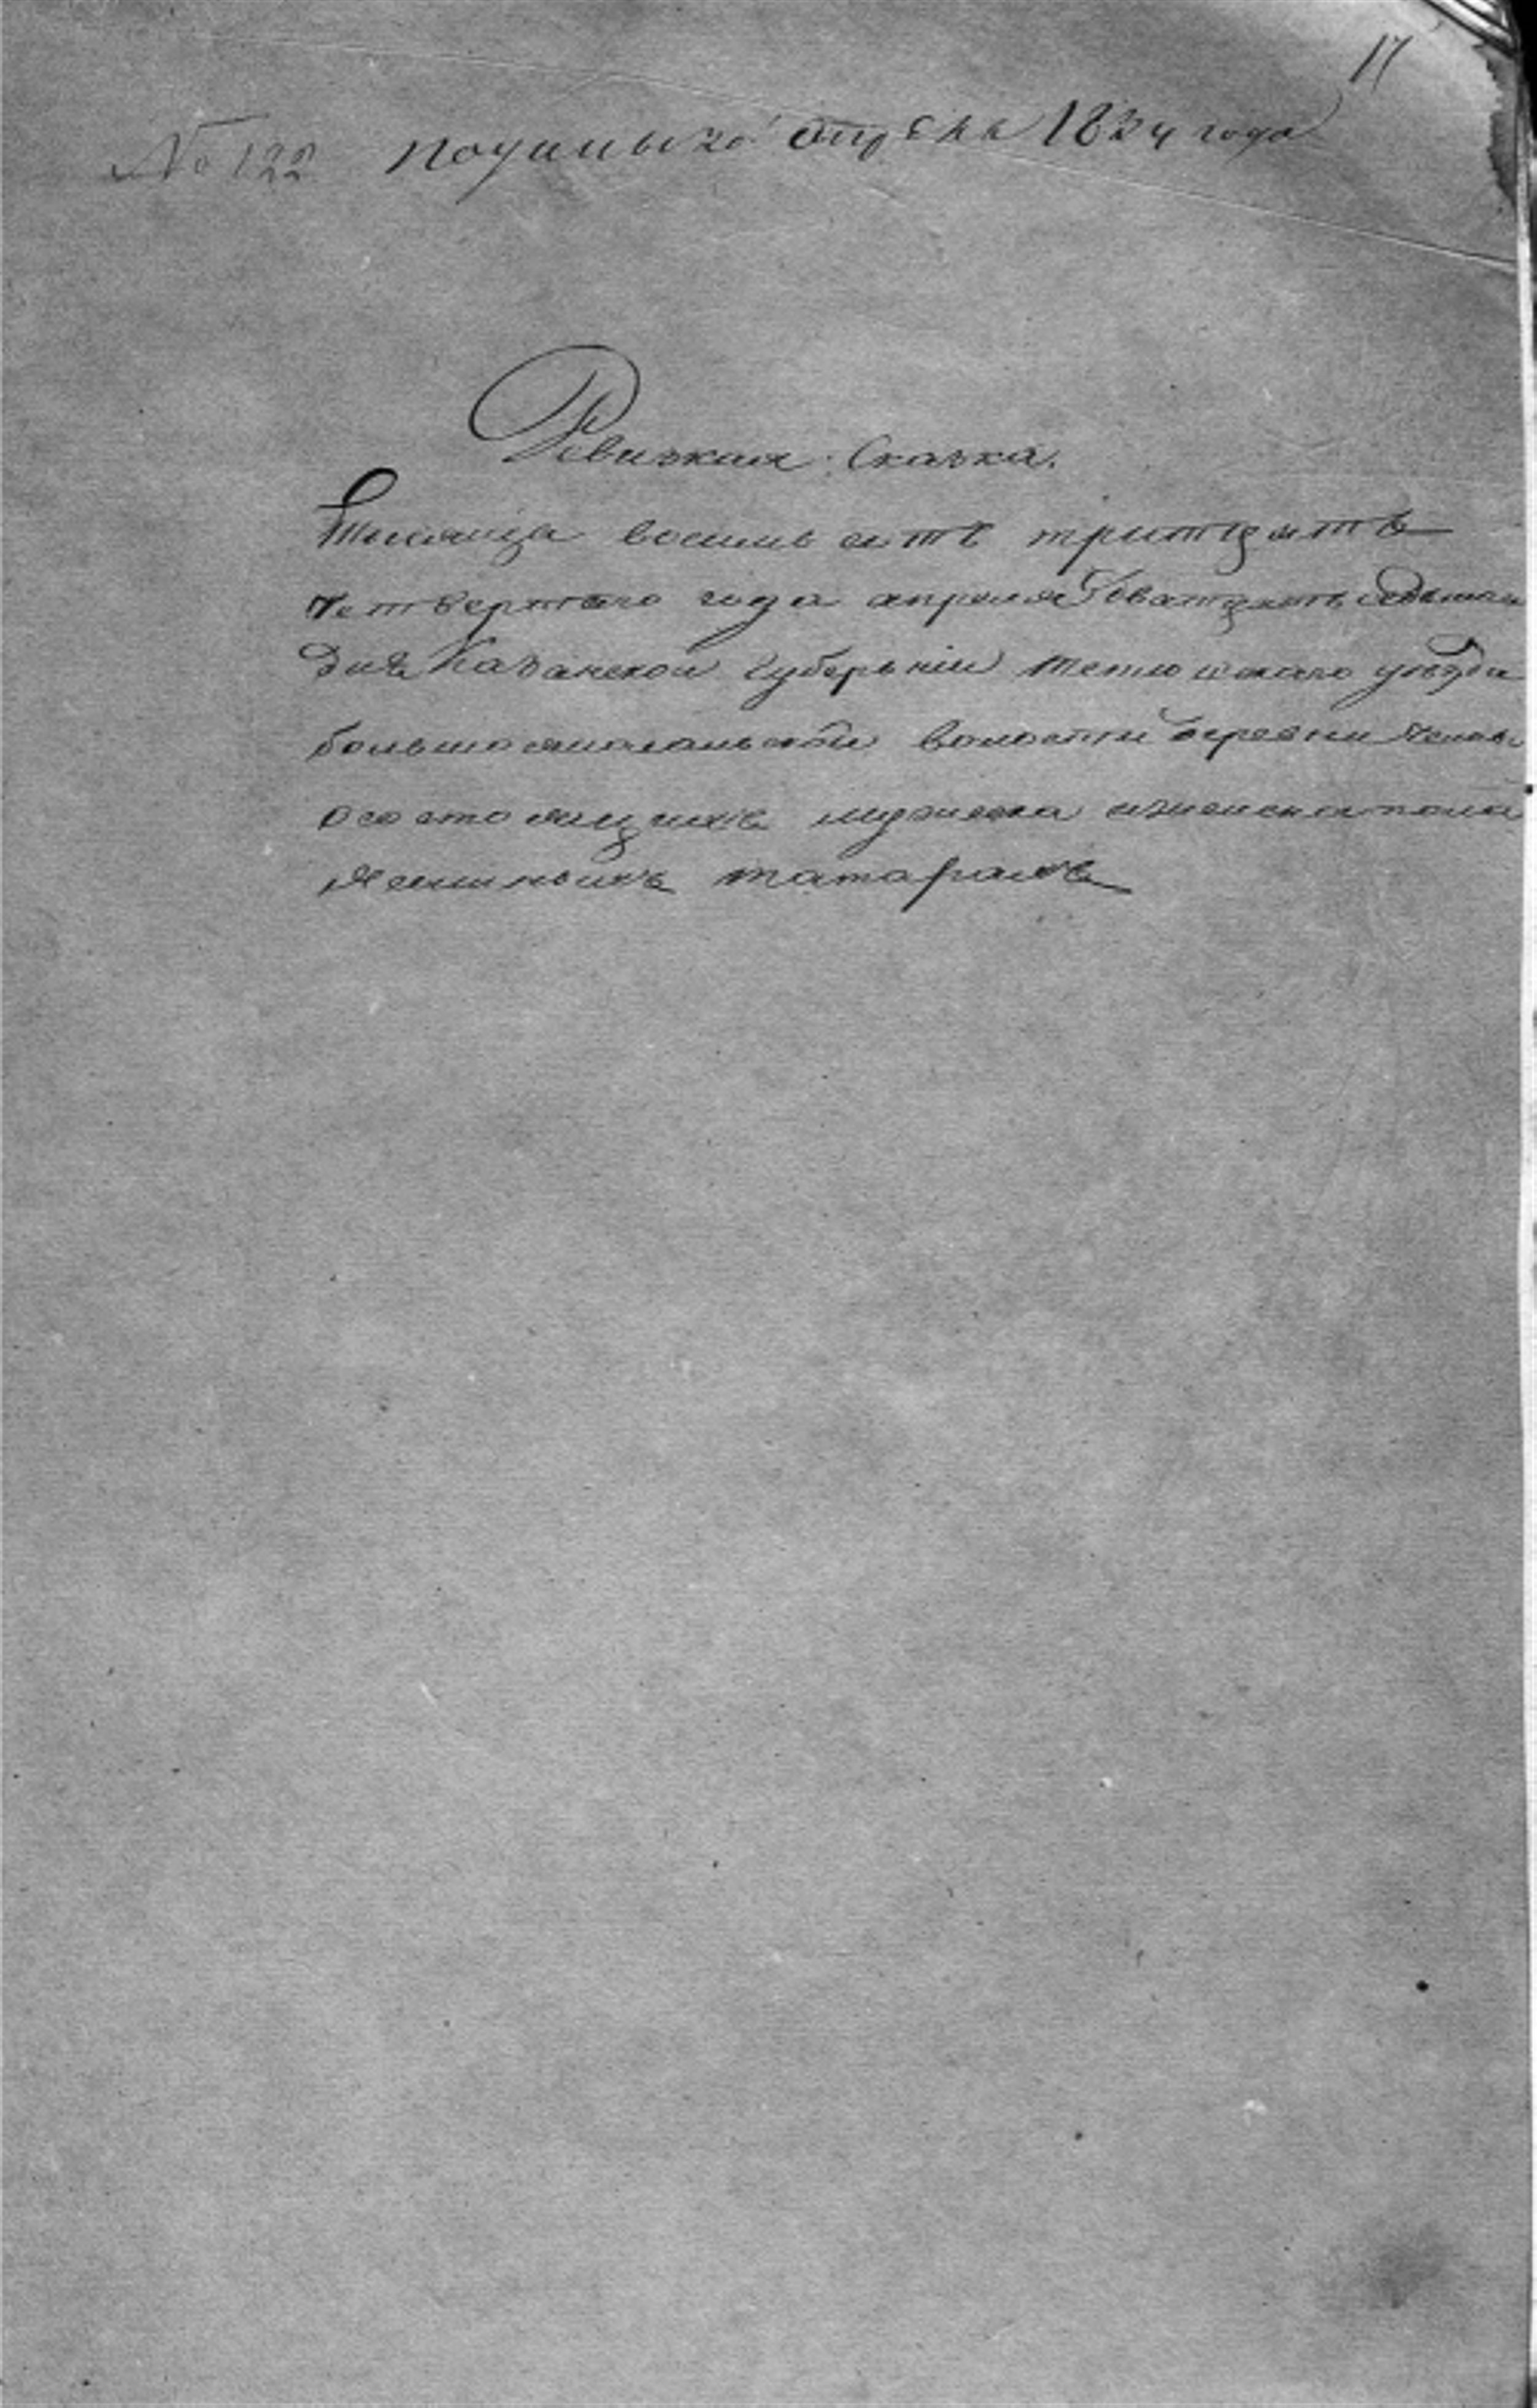 17
№ 122 Получена 30 апреля 1834 года
Ревизкая Сказка.
Тысяща восемь сотъ тритцать
четвертаго года апреля дватцать седмаго
дня Казанской губерьніи тетюшскаго уезда
волости деревни
осостоящихъ мужеска иженска пола
Ясашныхъ татарахъ